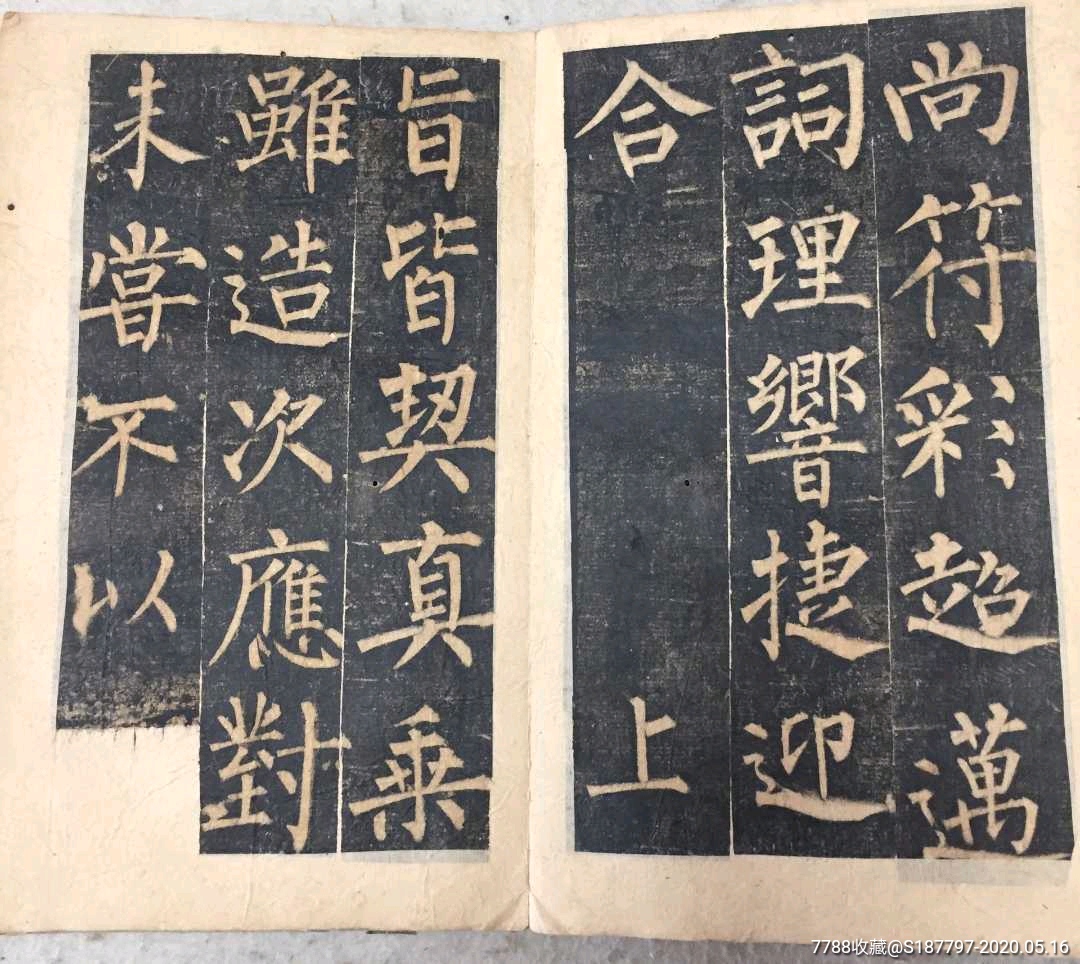 尚符彩超邁
詞理響捷迎
合上
旨皆契真乗
雖造次應對
未嘗不以
7788收藏@S187797-2020.05.16